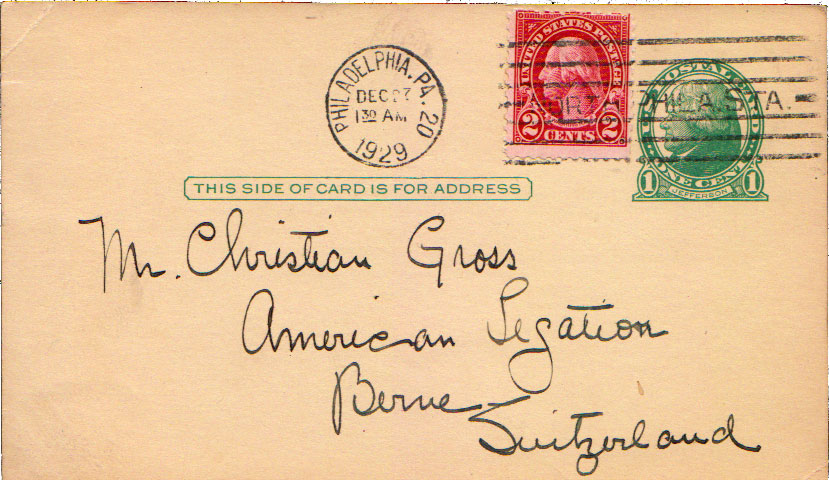 PHILADELPHIA, PA. 20
DEC 27
1 30 AM
1929
UNITED STATES POSTAGE
2 CENTS 2
PHILA. STA.
POSTAL CARD
ONE CENT
1 JEFFERSON 1
THIS SIDE OF CARD IS FOR ADDRESS
Mr. Christian Gross
American Legation
Berne
Switzerland